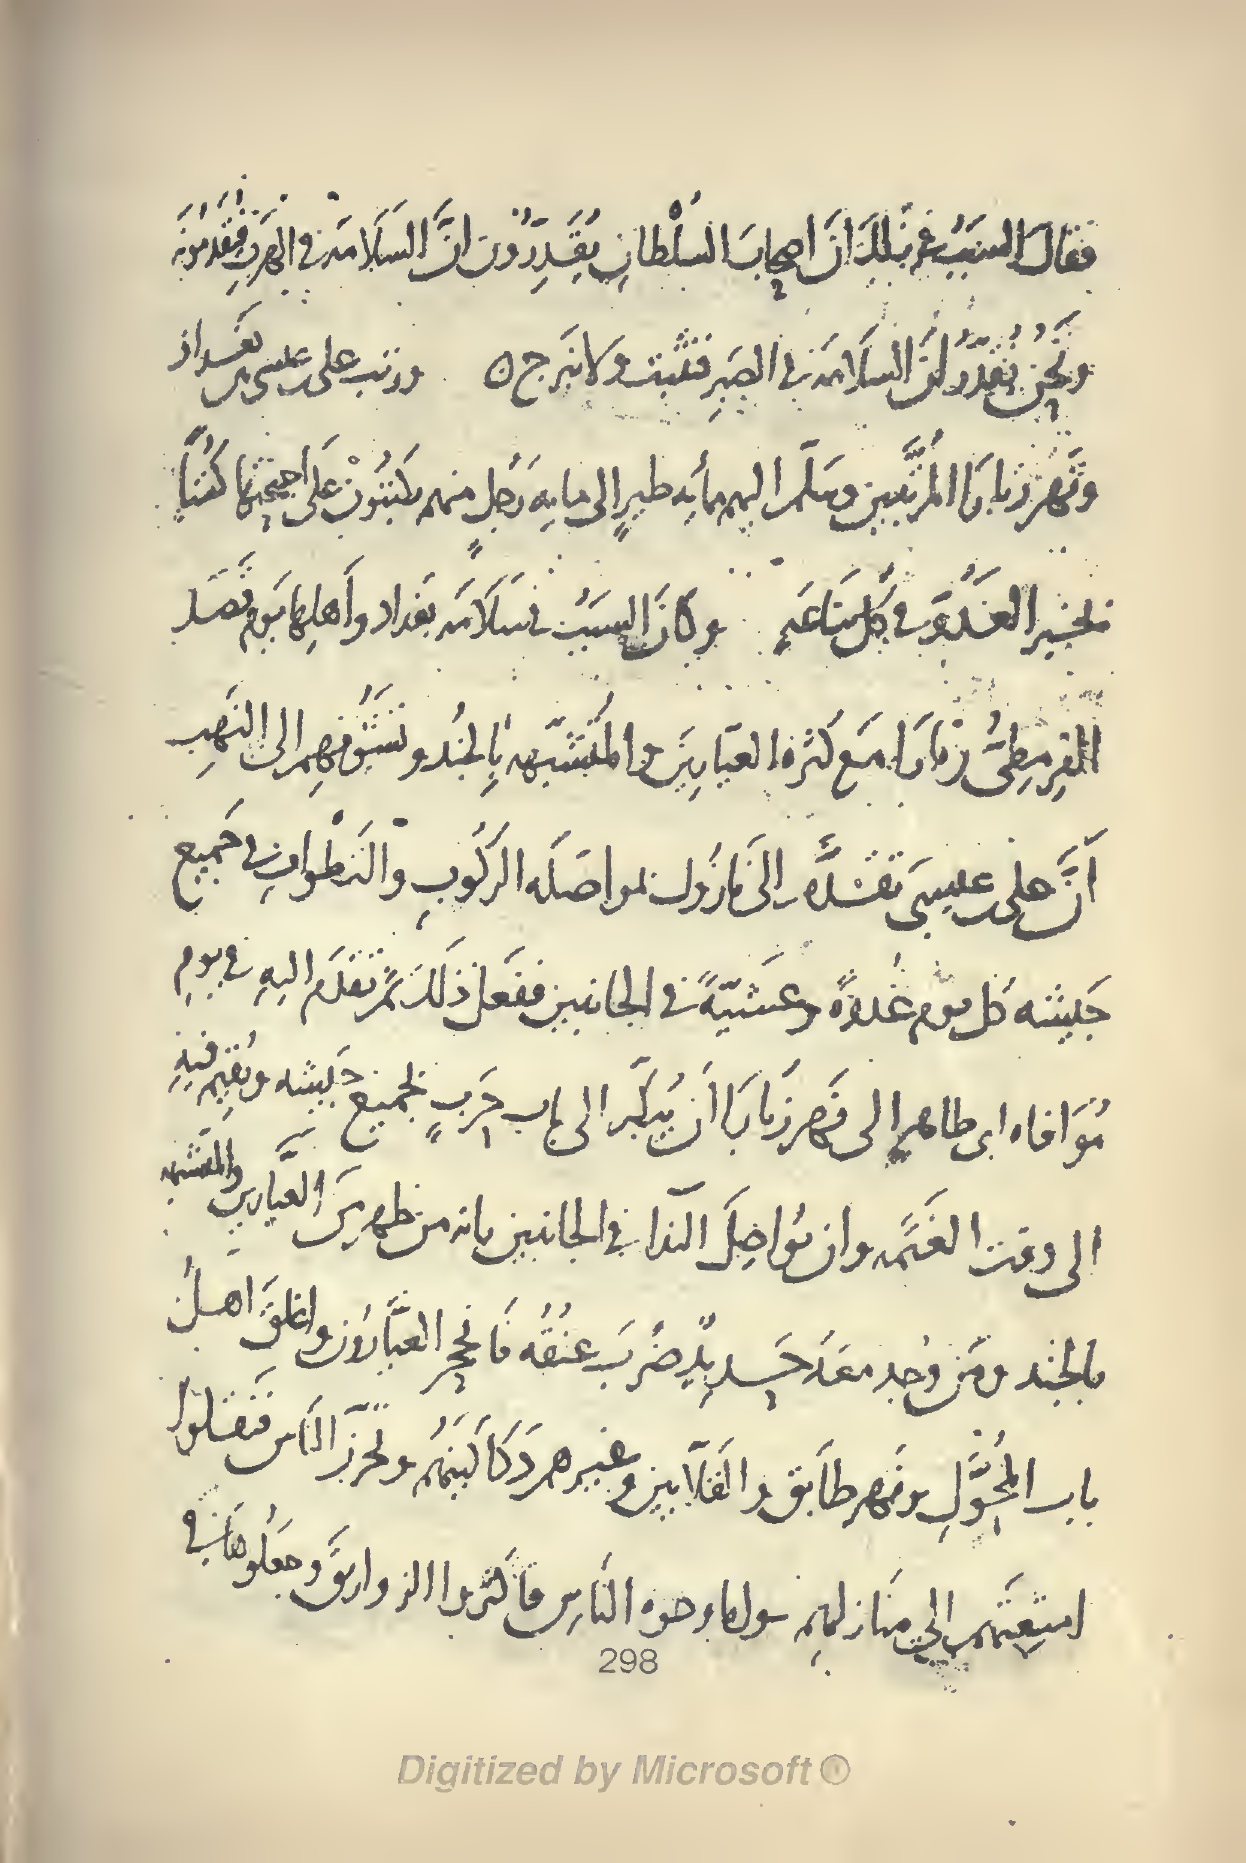 فقال السبب في ذلك ان اصحاب السلطان يقدرون ان السلامة في الهرب فيقدمونه
ونحن نقدر ان السلامة في الصبر فنثبت ولا نبرح ه ورتب علي بن عيسى بين بغداد
ونهر زبارا المرتبين وسلم اليهم مائة طير الى مائة رجل منهم يكتبون على اجنحتها كتبا
بخبر العدو في كل ساعة وكان السبب في سلامة بغداد واهلها يوم قصد
القرمطي زبارا مع كثرة العيارين والمتشبهة بالجند وتشوفهم الى النهب
ان علي بن عيسى تقدم الى نازوك بمواصلة الركوب والتطواف في جميع
جيشه كل يوم غدوة وعشية في الجانبين ففعل ذلك ثم تقدم اليه في يوم
موافاة ابي طاهر الى نهر زبارا ان يبكر الى باب حرب بجميع جيشه ويقيم فيه
الى وقت العتمة وان يواصل الندا في الجانبين بانه من ظهر من العيارين والمتشبهة
بالجند ومن وجد معه حديد ضرب عنقه فانجحر العيارون واغلق اهل
باب المحول ونهر طابق والقلايين وغيرهم دكاكينهم وتحرز الناس فنقلوا
امتعتهم الى منازلهم وجوه الناس فاكتروا الزواريق وجعلوها في
298
Digitized by Microsoft ®